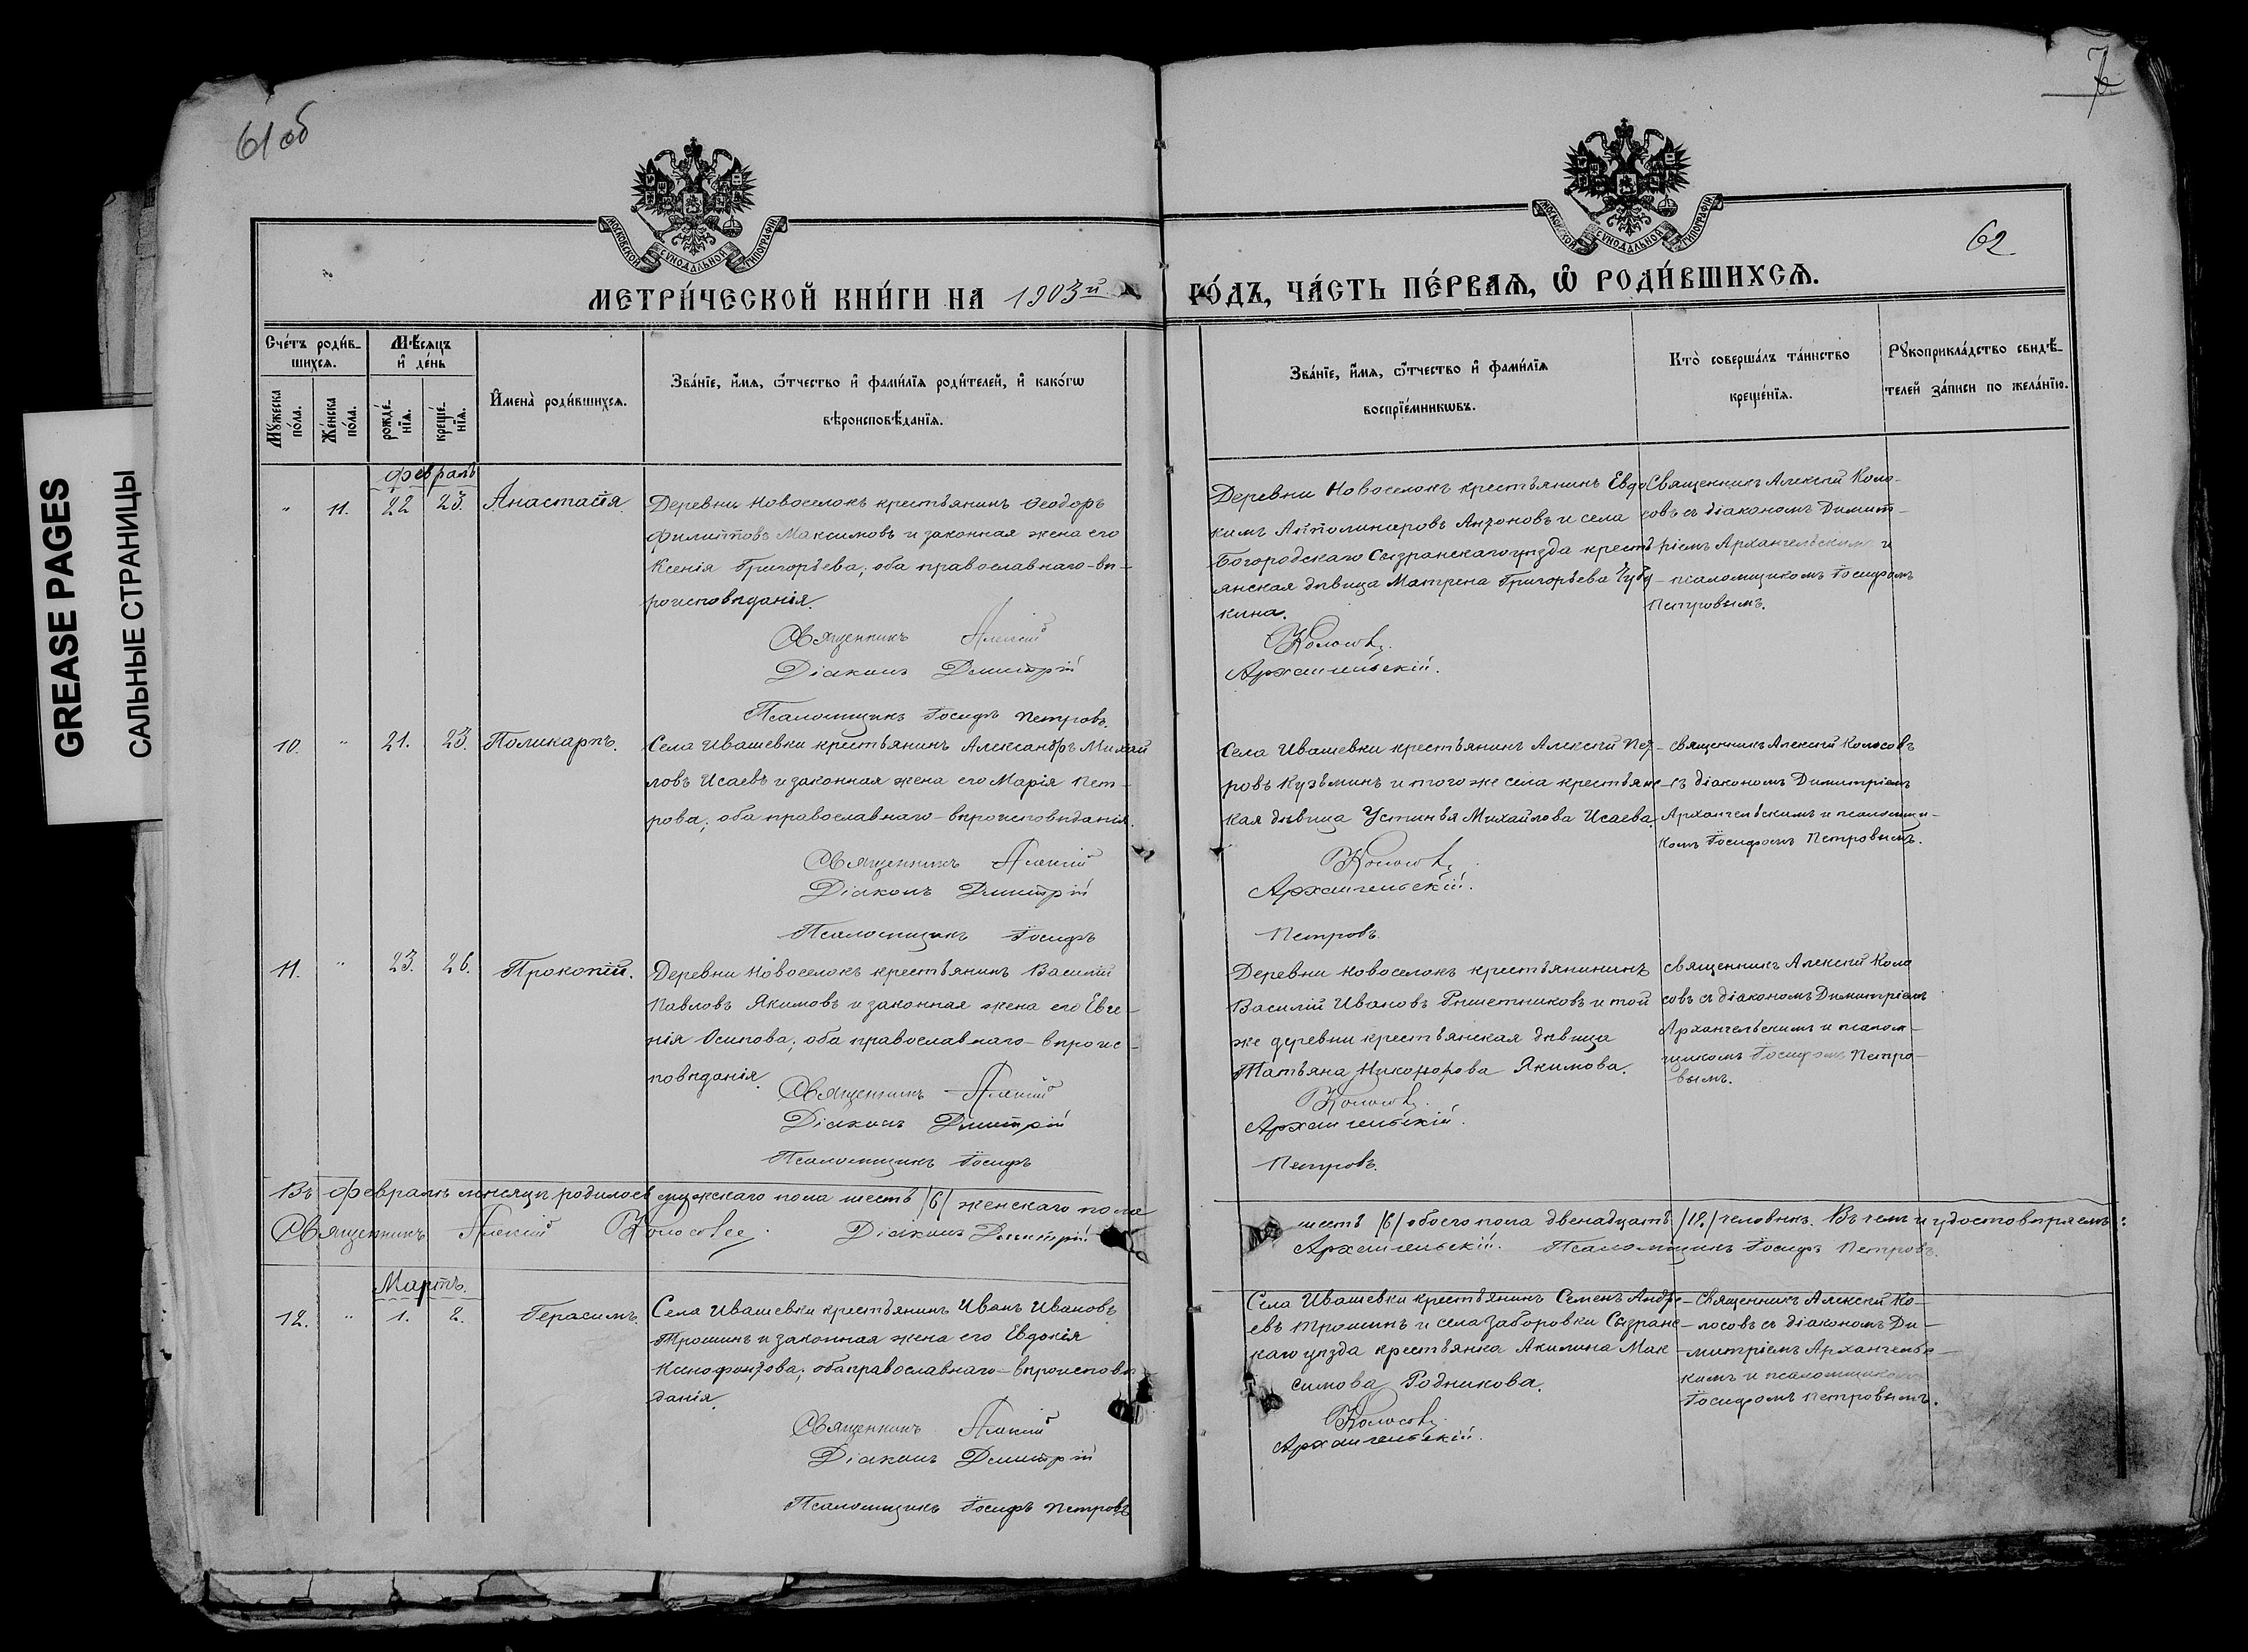 61 об
7
62
GREASE PAGES
САЛЬНЫЕ СТРАНИЦЫ
МОСКОВСКОЙ СУНОДАЛЬНОЙ ТИПОГРАФІИ
МОСКОВСКОЙ СУНОДАЛЬНОЙ ТИПОГРАФІИ
МЕТРИ́ЧЕСКОЙ КНИ́ГИ НА 1903й
ГО́ДЪ, ЧА́СТЬ ПЕ́РВАѦ, Ѡ҆ РОДИ́ВШИХСѦ.
Сче́тъ роди́в-
шихсѧ.
Мꙋ́жеска по́ла.
Же́нска по́ла.
Мѣ́сѧцъ
и҆ де́нь
рожде́-
нїѧ.
креще́-
нїѧ.
И҆мена̀ роди́вшихсѧ.
Зва́нїе, и҆́мѧ, ѻ҆́тчество и҆ фами́лїѧ роди́телей, и҆ како́гѡ
вѣроисповѣ́данїѧ.
Зва́нїе, и҆́мѧ, ѻ҆́тчество и҆ фами́лїѧ
воспрїе́мникѡвъ.
Кто̀ соверша́лъ та́инство
креще́нїѧ.
Рꙋкоприкла́дство свидѣ́-
телей за́писи по жела́нїю.
Февраль
" 11. 22 23. Анастасія.
Деревни Новоселокъ крестьянинъ Ѳеодоръ
Филипповъ Максимовъ и законная жена его
Ксенія Григорьева; оба православнаго вѣ-
роисповѣданія.
Священникъ Алексій
Діаконъ Димитрій
Псаломщикъ Іосифъ Петровъ.
Деревни Новоселокъ крестьянинъ Евдо
кимъ Апполинаровъ Анзоновъ и села
Богородскаго Сызранскаго уѣзда кресть
янская дѣвица Матрена Григорьева Чубу-
кина.
Колосовъ.
Архангельскій.
Священникъ Алексій Коло-
совъ съ діакономъ Димит-
ріемъ Архангельскимъ и
псаломщикомъ Іосифомъ
Петровымъ.
10. " 21. 23. Поликарпъ.
Села Ивашевки крестьянинъ Александръ Михай
ловъ Исаевъ и законная жена его Марія Пет-
рова; оба православнаго вѣроисповѣданія.
Священникъ Алексій
Діаконъ Димитрій
Псаломщикъ Іосифъ
Села Ивашевки крестьянинъ Алексій Пет-
ровъ Кузьминъ и того же села крестьянс-
кая дѣвица Устинья Михайлова Исаева.
Колосовъ.
Архангельскій.
Петровъ.
Священникъ Алексій Колосовъ
съ діакономъ Димитріемъ
Архангельскимъ и псаломщи-
комъ Іосифомъ Петровымъ.
11. " 23. 26. Прокопій.
Деревни Новоселокъ крестьянинъ Василій
Павловъ Якимовъ и законная жена его Евге-
нія Осипова; оба православнаго вѣроис-
повѣданія.
Священникъ Алексій
Діаконъ Димитрій
Псаломщикъ Іосифъ
Деревни Новоселокъ крестьянининъ
Василій Ивановъ Рѣшетниковъ и той
же деревни крестьянская дѣвица
Татьяна Никонорова Якимова.
Колосовъ.
Архангельскій.
Петровъ.
Священникъ Алексій Коло
совъ съ діакономъ Димитріемъ
Архангельскимъ и псалом-
щикомъ Іосифомъ Петро-
вымъ.
Въ Февралѣ мѣсяцѣ родилось мужскаго пола шесть /6/ женскаго пола
шесть /6/ обоего пола двенадцать /12./ человѣкъ. Въ чемъ и удостовѣряемъ:
Священникъ Алексій Колосовъ. Діаконъ Димитрій
Архангельскій. Псаломщикъ Іосифъ Петровъ.
Мартъ.
12. " 1. 2. Герасимъ.
Села Ивашевки крестьянинъ Иванъ Ивановъ
Трошинъ и законная жена его Евдокія
Ксинофонтова; оба православнаго вѣроисповѣ
данія.
Священникъ Алексій
Діаконъ Димитрій
Псаломщикъ Іосифъ Петровъ
Села Ивашевки крестьянинъ Семенъ Андре-
евъ Трошинъ и села Заборовки Сызранс-
каго уѣзда крестьянка Акилина Мак-
симова Родникова.
Колосовъ.
Архангельскій.
Священникъ Алексій Ко-
лосовъ съ діакономъ Ди-
митріемъ Архангельс-
кимъ и псаломщикомъ
Іосифомъ Петровымъ.